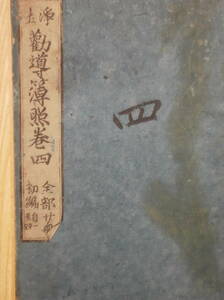 浄土
勸導簿照卷四
全部廿冊
初編自一
四